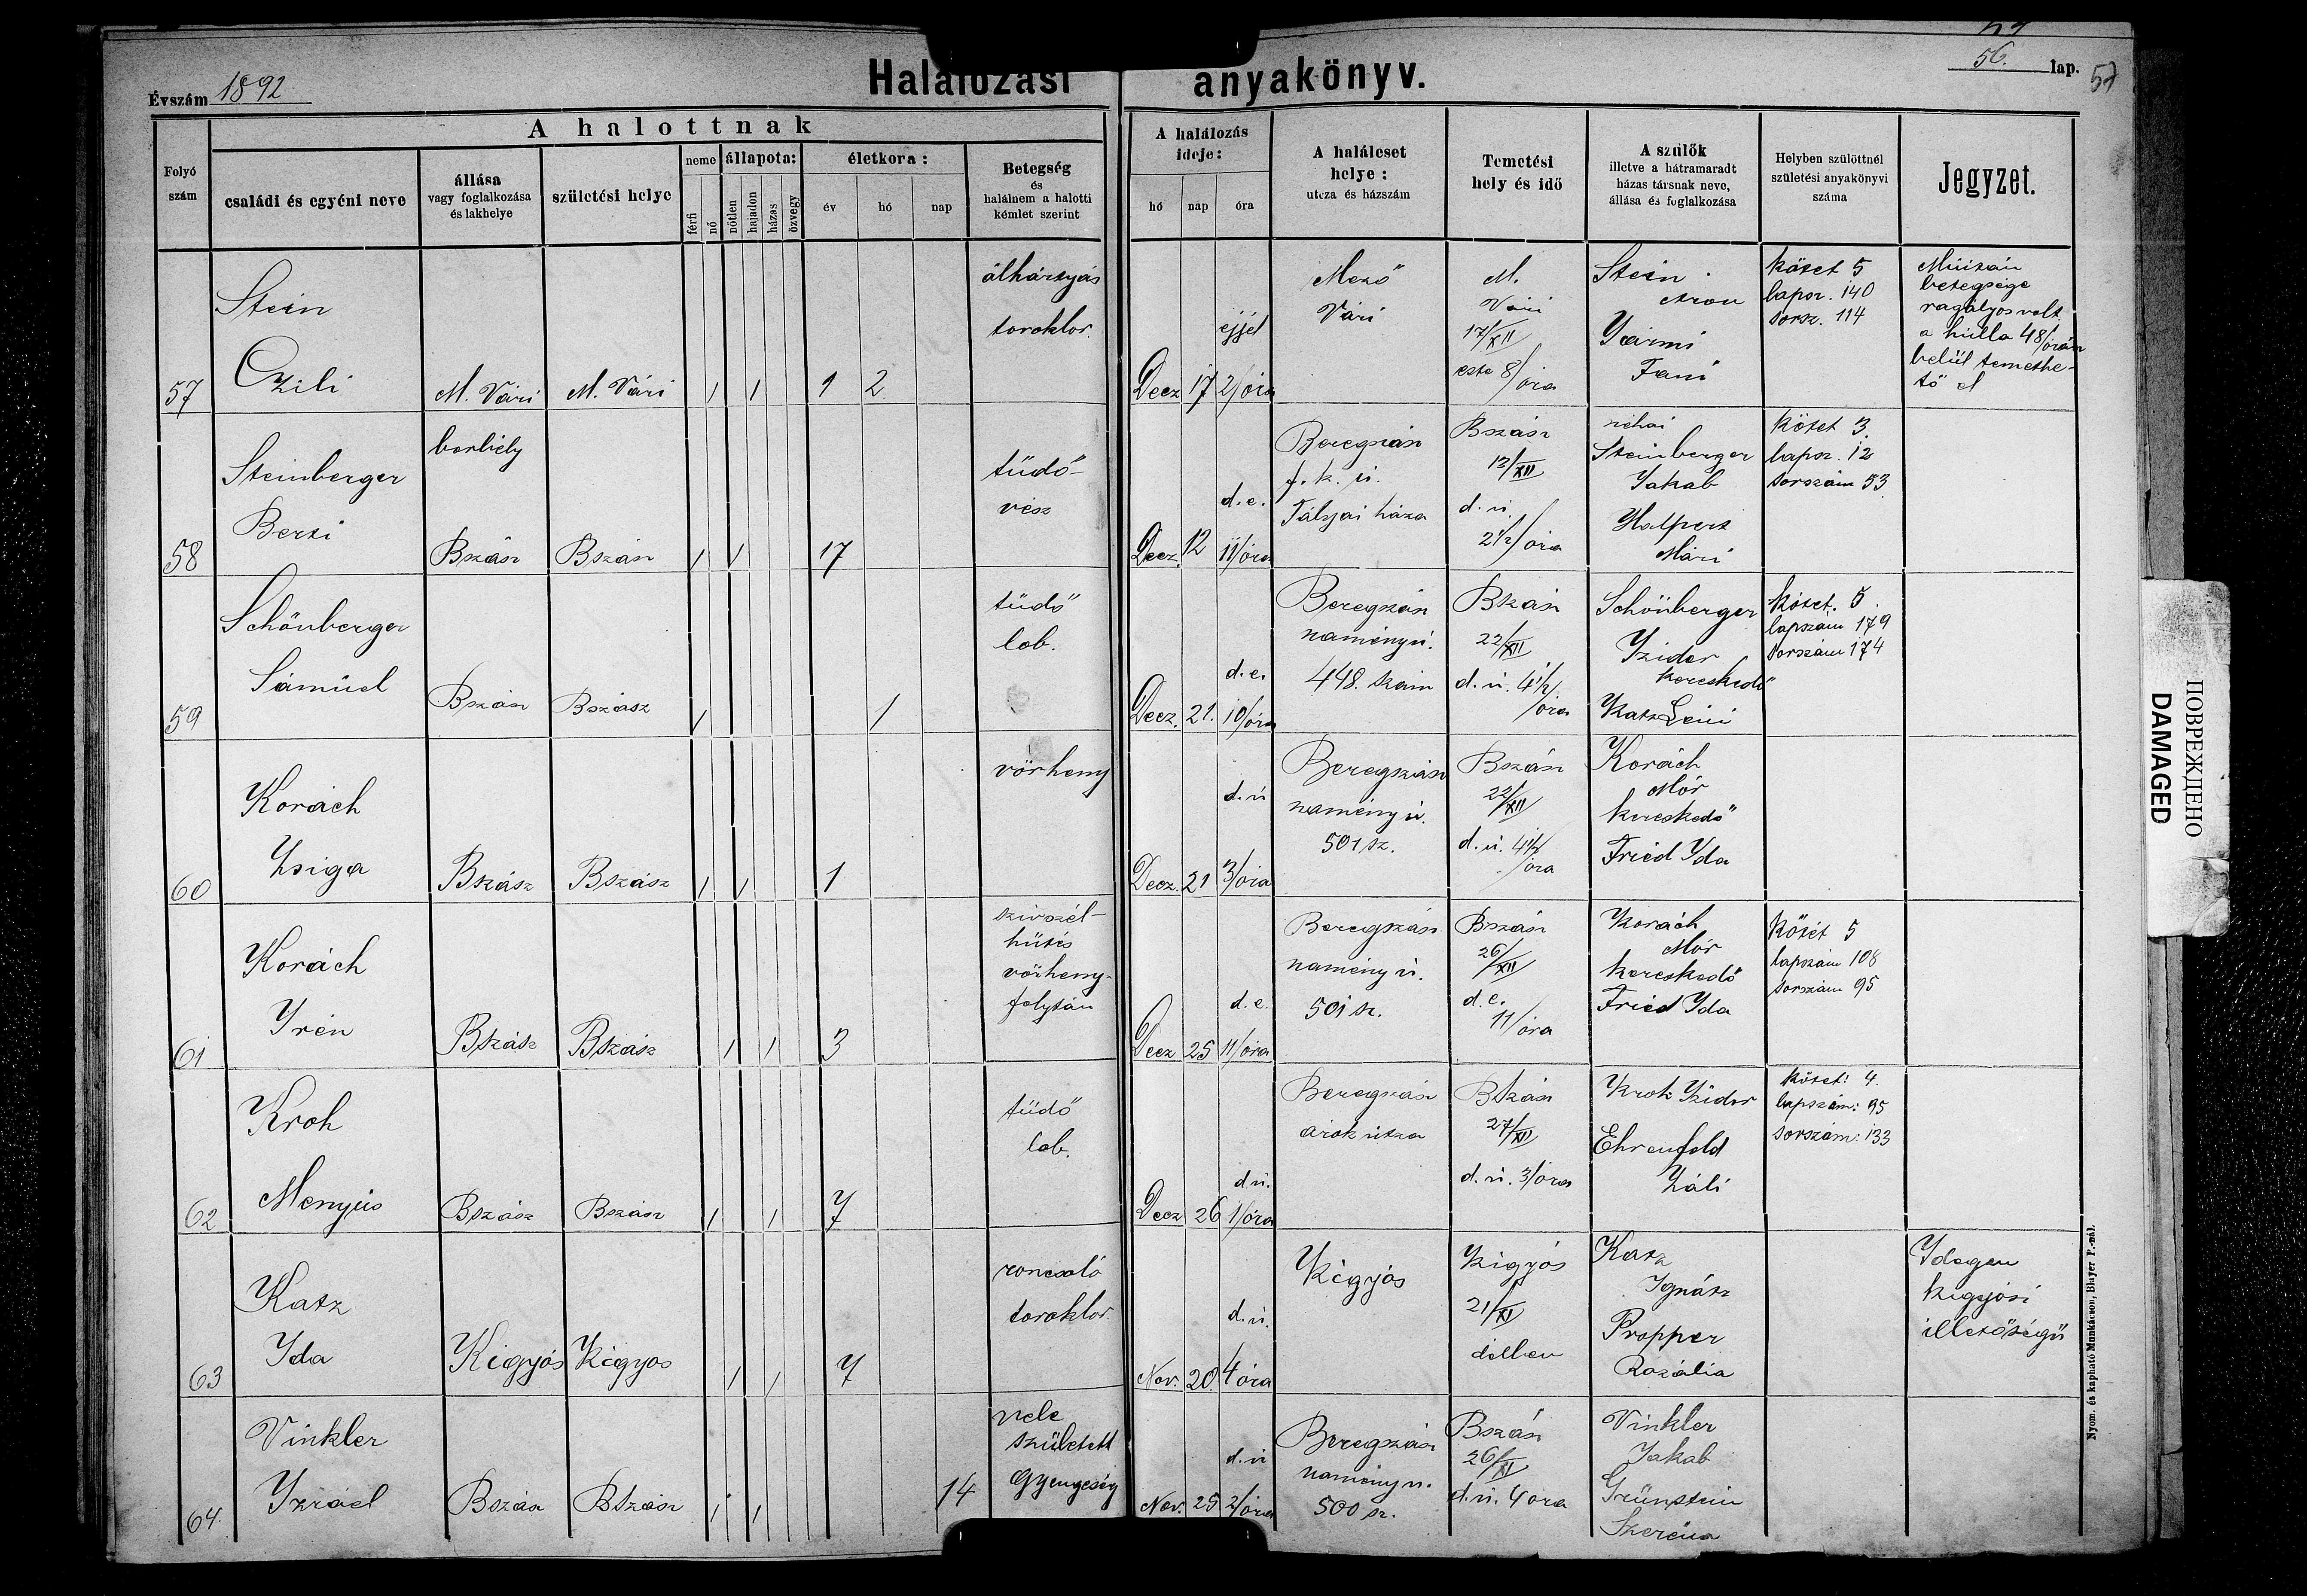 Évszám 1892
Halálozási anyakönyv.
56. lap. 57
A halottnak
Folyó szám
családi és egyéni neve
állása
vagy foglalkozása
és lakhelye
születési helye
neme
férfi
nő
állapota:
nőtlen
hajadon
házas
özvegy
életkora:
év
hó
nap
Betegség
és
halálnem a halotti
kémlet szerint
A halálozás
ideje:
hó
nap
óra
A haláleset
helye:
utcza és házszám
Temetési
hely és idő
A szülők
illetve a hátramaradt
házas társnak neve,
állása és foglalkozása
Helyben szülöttnél
születési anyakönyvi
száma
Jegyzet.
57
Stein
Czili
M. Vári
M. Vári
1
1
1
2
álhártyás
toroklob.
Decz
17
éjjel
2/óra
Mező
Vári
M.
Vári
17/XII
este 8/óra
Stein
Áron
Jármi
Fani
Kötet 5
lapsz. 140
sorsz. 114
Miután
betegsége
ragályos volt
a hulla 48/órán
belül temethe-
tő el
58
Steinberger
Berti
borbély
Bszász
Bszász
1
1
17
tüdő-
vész
Decz.
12
d. e.
11/óra
Beregszász
f. k. ú.
háza
Bszász
13/XII
d. u.
2 1/2/óra
néhai
Steinberger
Jakab
Halpert
Mári
Kötet 3.
lapsz. 12
sorszám 53.
59
Schönberger
Sámúel
Bszász
Bszász
1
1
tüdő
lob.
Decz.
21.
d. e.
10/óra
Beregszász
namény ú.
448. szám
Bszász
22/XII
d. u. 4 1/2/
óra
Schönberger
Izidor
kereskedő
Katz Leni
Kötet. 5.
lapszám 179
sorszám 174
60
Korách
Zsiga
Bszász
Bszász
1
1
1
vörheny
Decz.
21
d. u
3/óra
Beregszász
namény ú.
501 sz.
Bszász
22/XII
d. u. 4 1/2
/óra
Korách
Mór
kereskedő
Fried Ida
61
Korách
Irén
Bszász
Bszász
1
1
3
szivszél-
hüdés
vörheny-
folytán
Decz
25
d. e.
11/óra
Beregszász
namény ú.
501 sz.
Bszász
26/XII
d. e.
11/óra
Korách
Mór
kereskedő
Fried Ida
Kötet 5
lapszám 108
sorszám 95
62
Kroh
Menyüs
Bszász
Bszász
1
1
7
tüdő
lob.
Decz
26
d u.
1/óra
Beregszász
árok útza
Bszász
27/XII
d. u. 3/óra
Kroh Izidor
Ehrenfeld
Záli
Kötet: 4.
lapszám: 95
sorszám: 133
63
Katz
Ida
Kigyós
Kigyos
1
1
7
roncsoló
toroklob.
Nov.
20.
d. u.
4 óra
Kigyós
Kigyós
21/XI
délben
Katz
Ignátz
Propper
Rozália
Idegen
kigyósi
illetőségü
64.
Vinkler
Izráel
Bszász
Bszász
1
1
14
vele
született
gyengeség
Nov.
25
d. u
2/óra
Beregszász
namény u.
500 sz.
Bszász
26/XI
d. u. 4 óra
Vinkler
Jakab
Grünstein
Szeréna
Nyom. és kapható Munkácson, Blayer P.-nál.
ПОВРЕЖДЕНО
DAMAGED